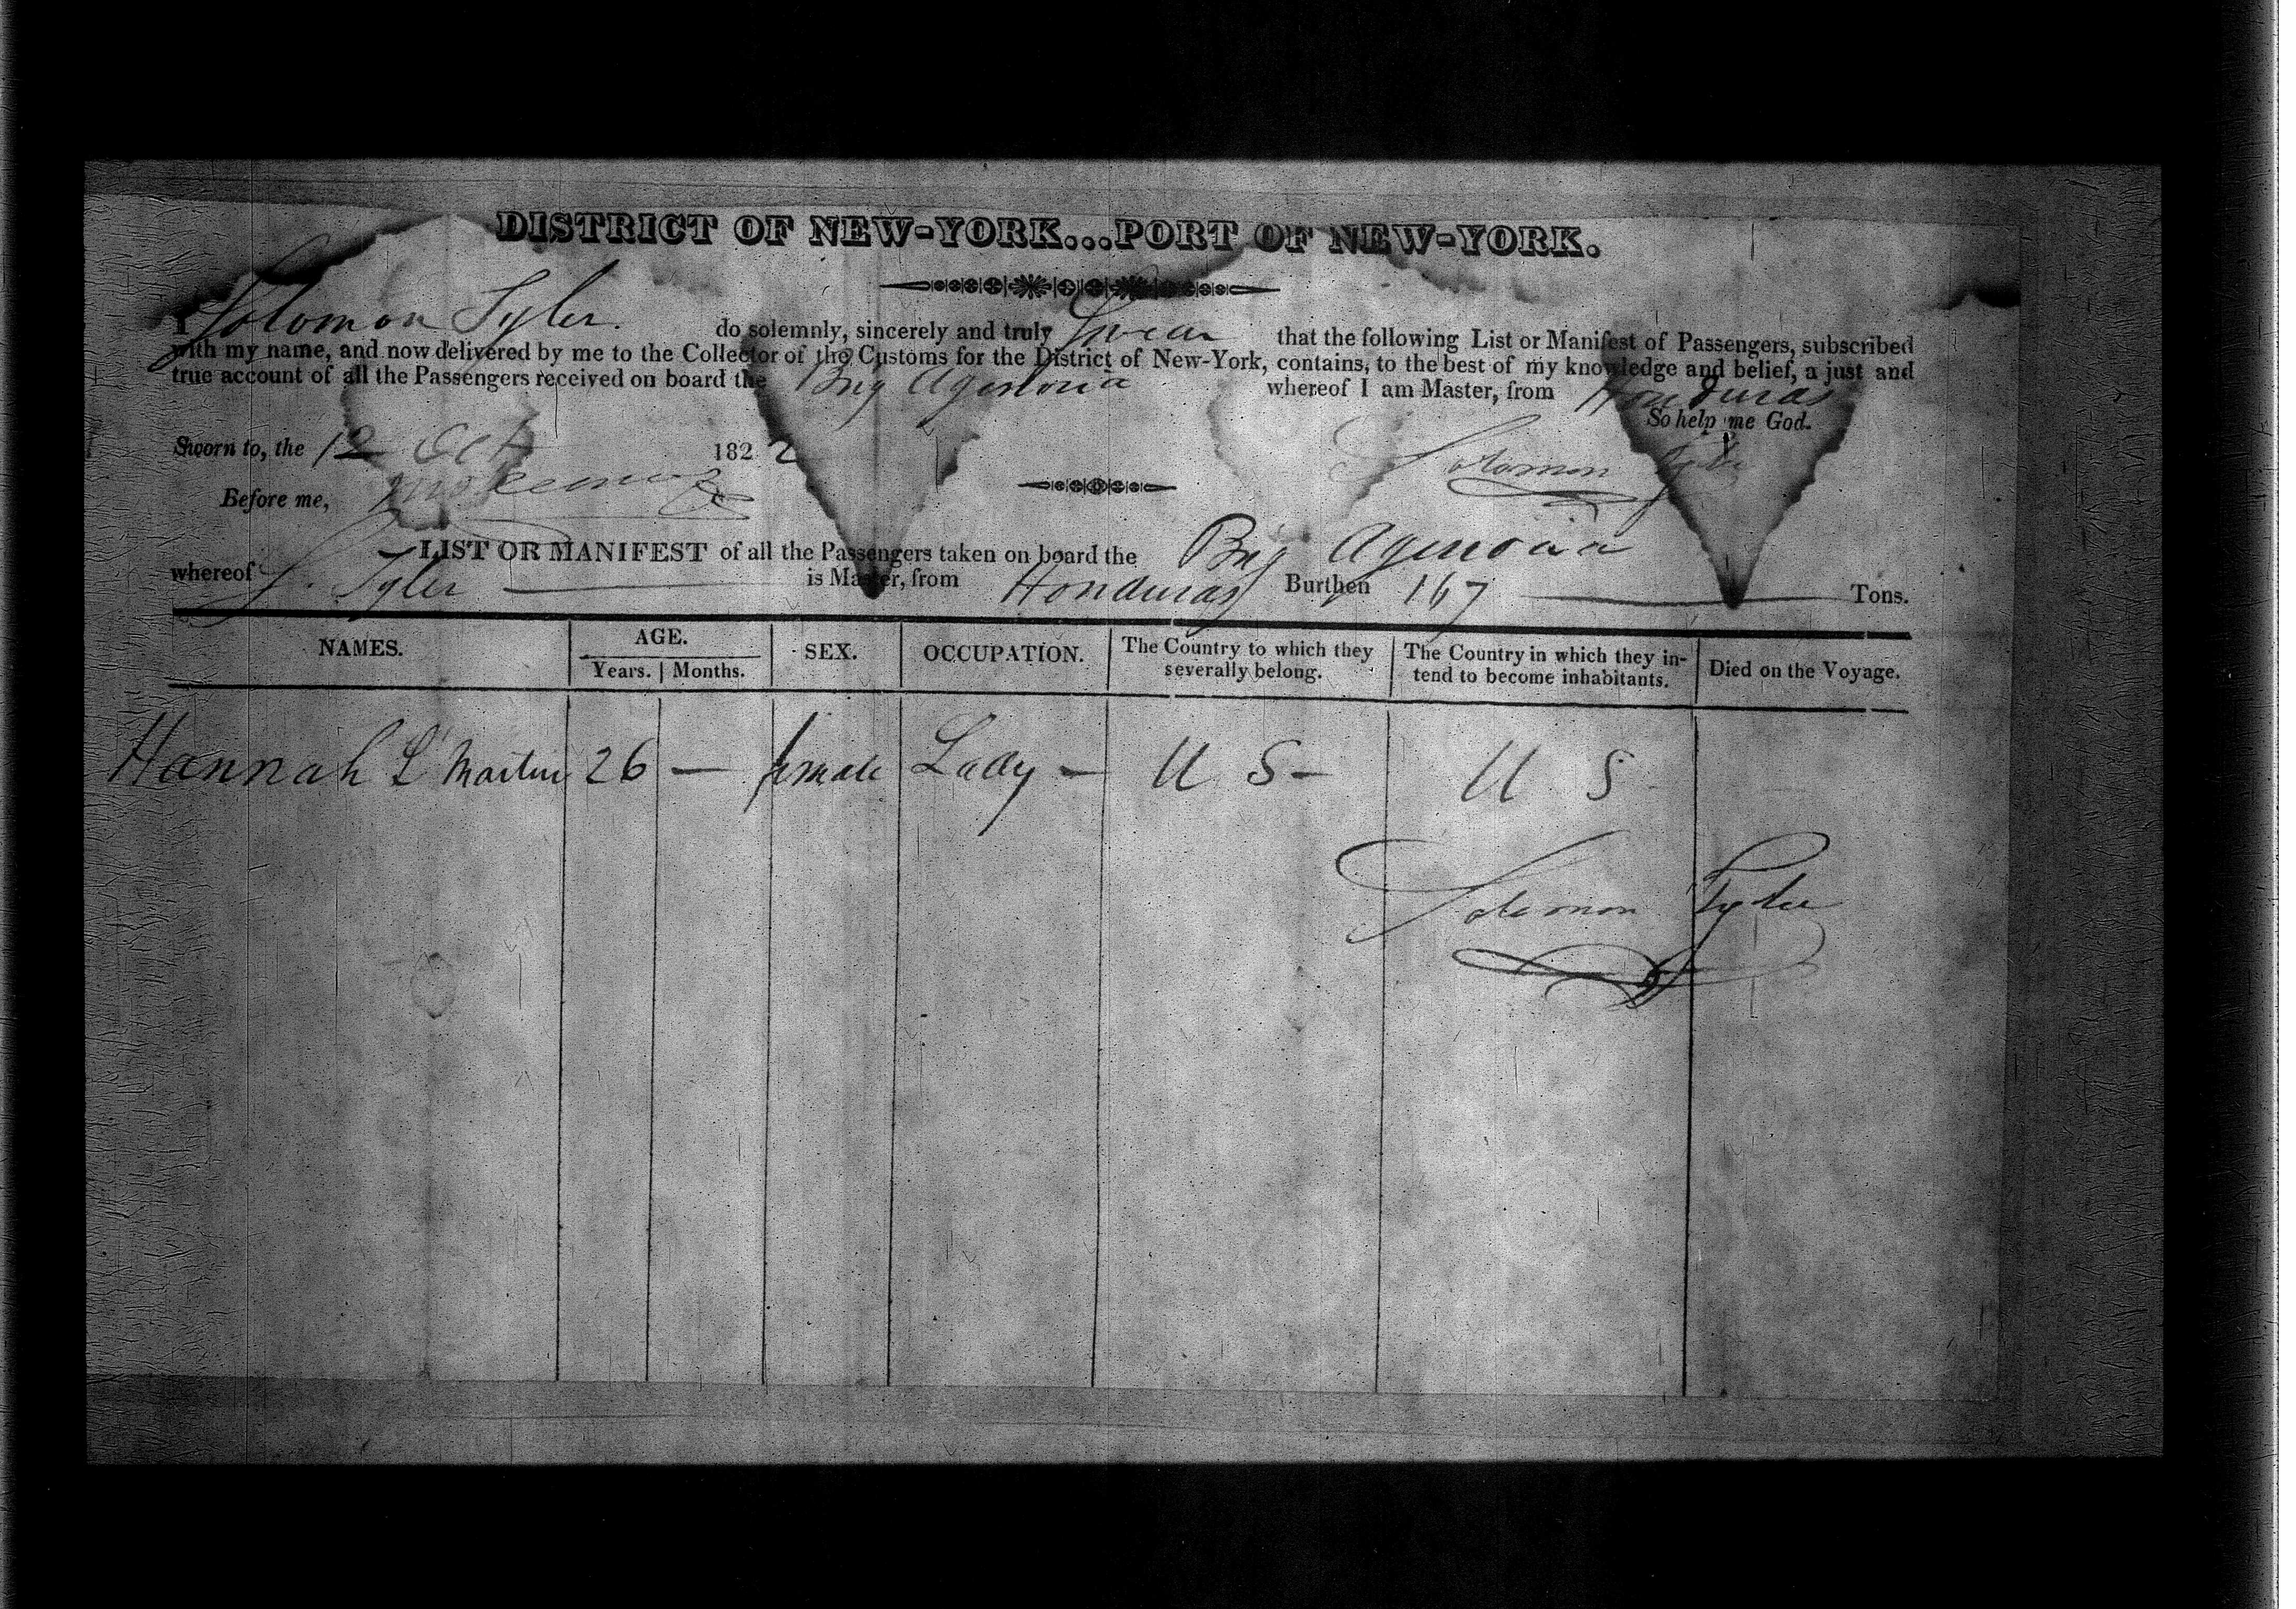 DISTRICT OF NEW-YORK...PORT OF NEW-YORK.
I Solomon Tyler. do solemnly, sincerely and truly Swear that the following List or Manifest of Passengers, subscribed
with my name, and now delivered by me to the Collector of the Customs for the District of New-York, contains, to the best of my knowledge and belief, a just and
true account of all the Passengers received on board the Brig Agenoria whereof I am Master, from Honduras
So help me God.
Sworn to, the 12 Oct 1822
Solomon Tyler
Before me,
LIST OR MANIFEST of all the Passengers taken on board the Brig Agenoria
whereof S. Tyler is Master, from Honduras Burthen 167 Tons.
NAMES. AGE. SEX. OCCUPATION. The Country to which they severally belong. The Country in which they in-tend to become inhabitants. Died on the Voyage.
Years. Months.
Hannah L Martin 26 — female Lady — U S — U S
Solomon Tyler